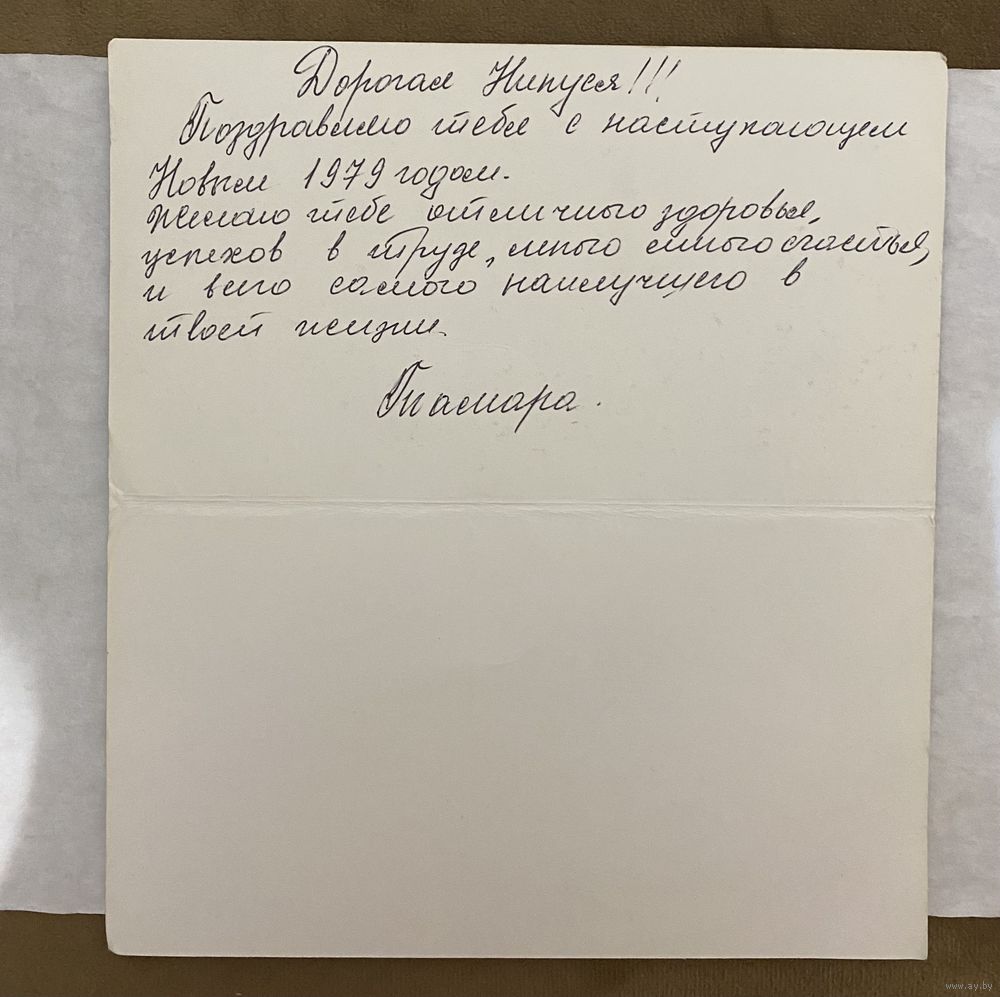 Дорогая Нинуся!!!
Поздравляю тебя с наступающем
Новым 1979 годом.
Желаю тебе отличного здоровья,
успехов в труде, много много счастья,
и всего самого наилучшего в
твоей жизни.
Тамара.
www.ay.by